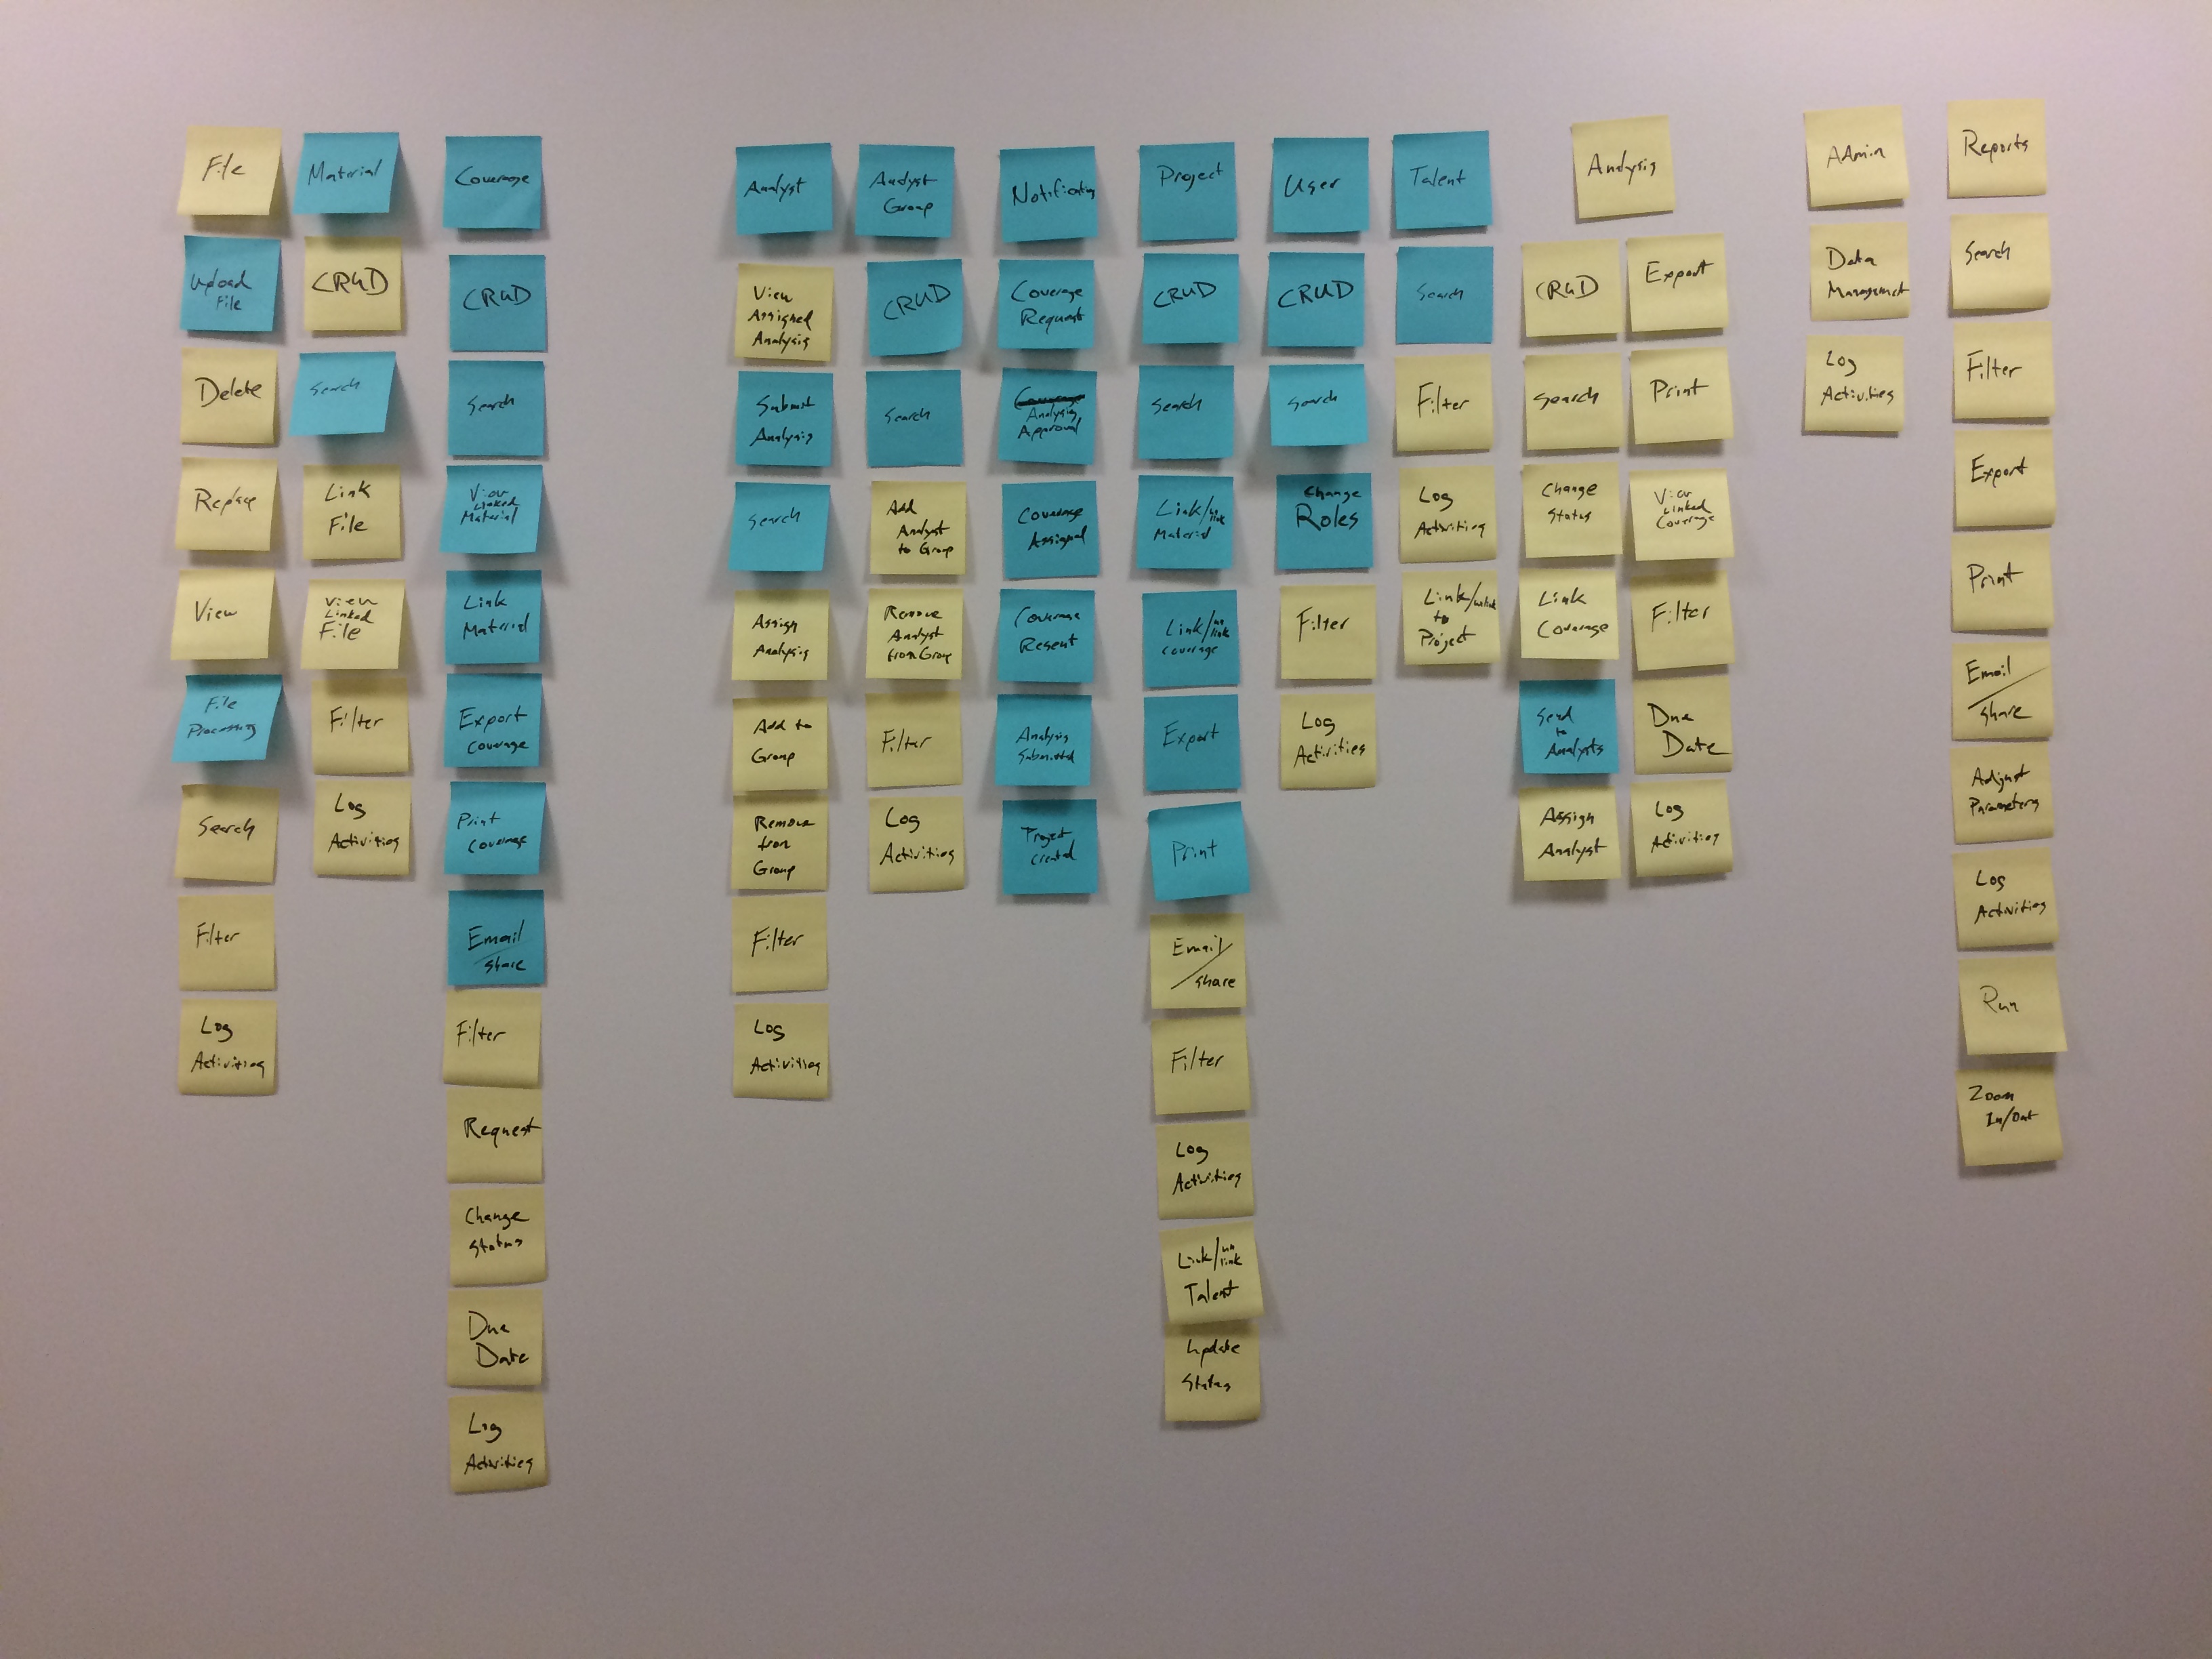 File
Upload
File
Delete
Replace
View
File
Processing
Search
Filter
Log
Activities
Material
CRUD
Search
Link
File
View
Linked
File
Filter
Log
Activities
Coverage
CRUD
Search
View
Linked
Material
Link
Material
Export
Coverage
Print
Coverage
Email
/share
Filter
Request
Change
Status
Due
Date
Log
Activities
Analyst
View
Assigned
Analysis
Submit
Analysis
Search
Assign
Analysis
Add to
Group
Remove
from
Group
Filter
Log
Activities
Analyst
Group
CRUD
Search
Add
Analyst
to Group
Remove
Analyst
from Group
Filter
Log
Activities
Notification
Coverage
Request
Coverage
Analysis
Approval
Coverage
Assigned
Coverage
Resent
Analysis
Submitted
Project
created
Project
CRUD
Search
Link/un
link
Material
Link/un
link
coverage
Export
Print
Email/
share
Filter
Log
Activities
Link/un
link
Talent
Update
Status
User
CRUD
Search
Change
Roles
Filter
Log
Activities
Talent
Search
Filter
Log
Activities
Link/unlink
to
Project
Analysis
CRUD
Search
Change
Status
Link
Coverage
Send
to
Analysts
Assign
Analyst
Export
Print
View
Linked
Coverage
Filter
Due
Date
Log
Activities
Admin
Data
Management
Log
Activities
Reports
Search
Filter
Export
Print
Email
/
share
Adjust
Parameters
Log
Activities
Run
Zoom
In/Out